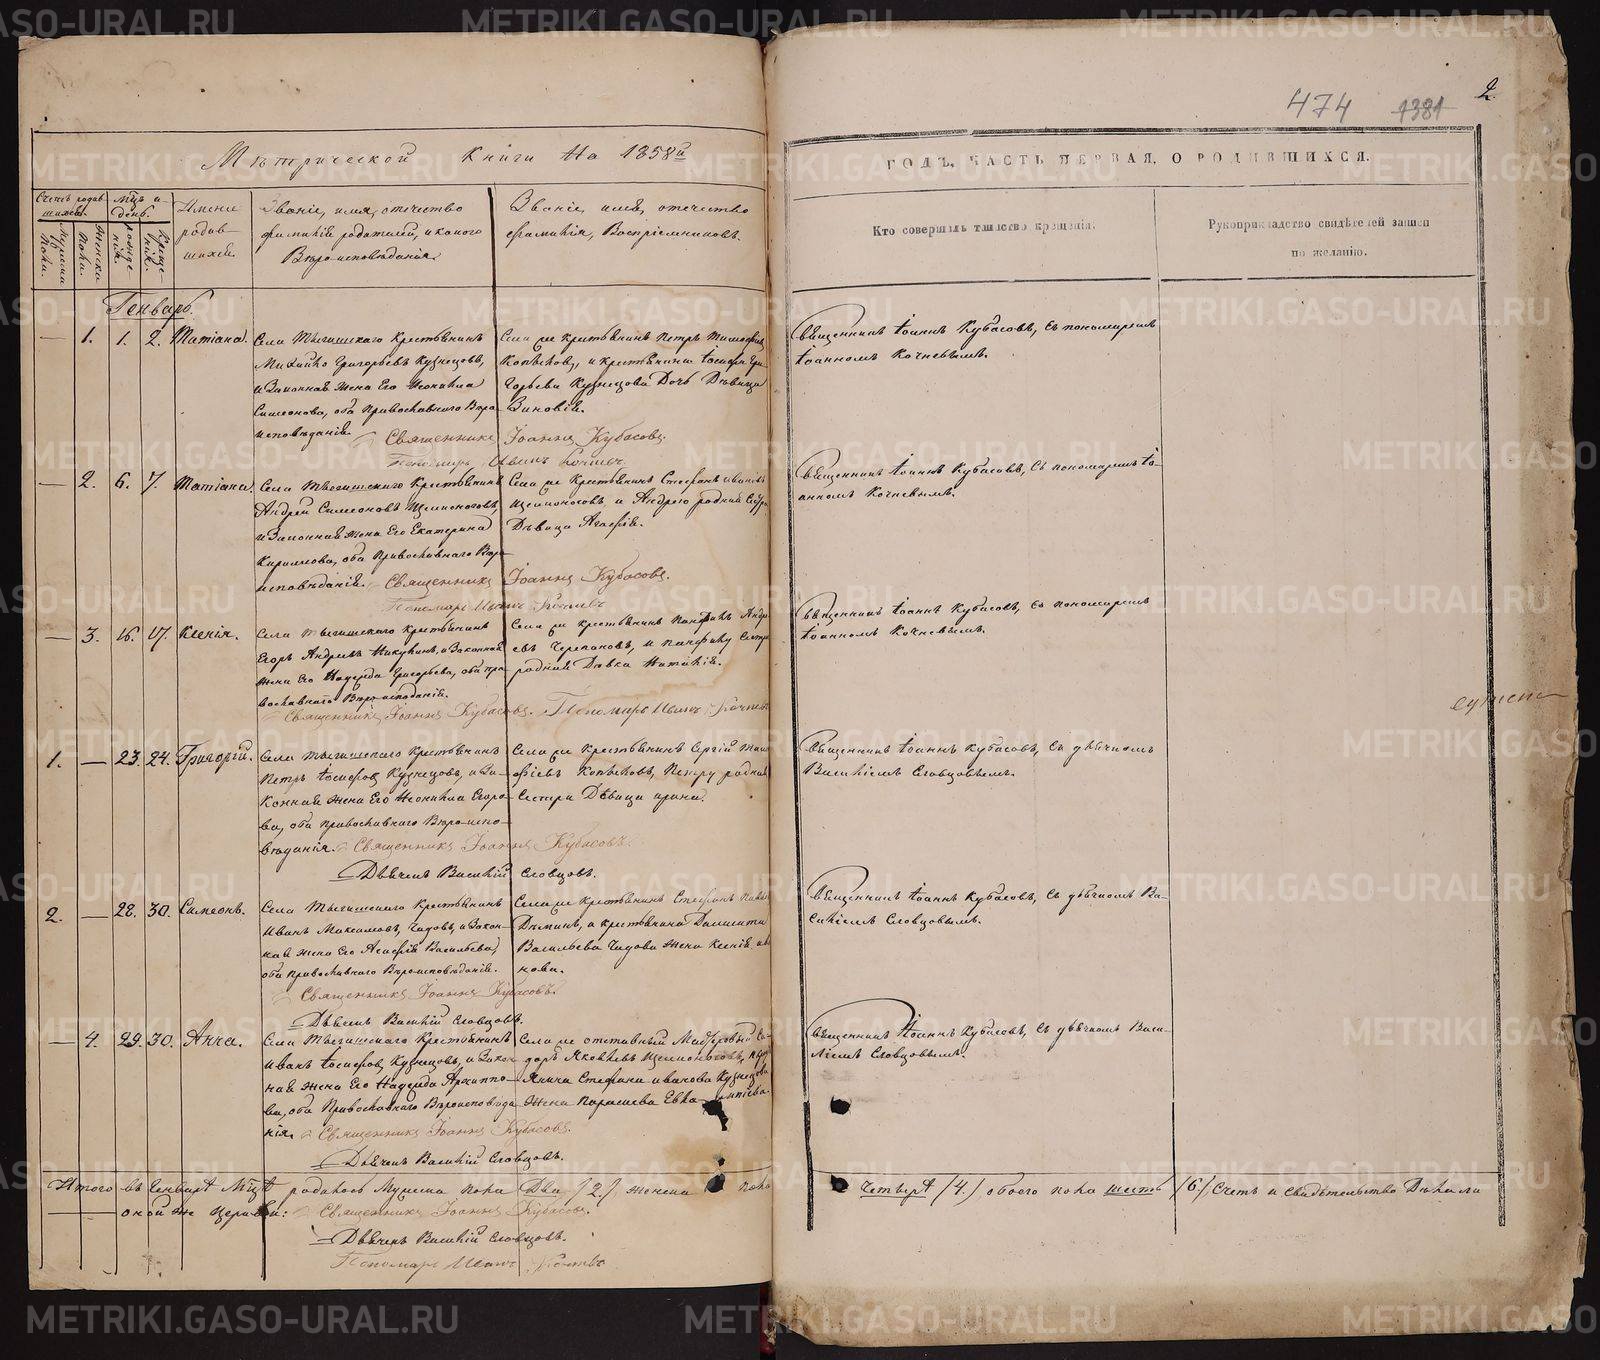 474 1381 2.
Метрической Книги на 1858й
ГОДЪ, ЧАСТЬ ПЕРВАЯ, О РОДИВШИХСЯ.
Счетъ родив-
шихся.
Мужеска
пола.
Женска
пола.
Мцъ и
день.
рожде-
нія.
Креще-
нія.
Имена
родив-
шихся.
Званіе, имя, отчество
фамилія родителей, и какого
Вѣроисповѣданія.
Званіе, имя, отчество
фамилія, Воспріемниковъ.
Кто совершалъ таинство крещенія.
Рукоприкладство свидѣтелей записи
по желанію.
Генварь.
— 1. 1. 2. Татіана.
Села Тыгишскаго Крестьянинъ
Михайло Григорьевъ Кузнецовъ,
и Законная жена Его Неонила
Симеонова, оба Православнаго Вѣро-
исповѣданія.
Села же Крестьянинъ Петръ
Копыловъ, и крестьянина Іосифа Гри-
горьева Кузнецова Дочь Дѣвица
Зиновія.
Священникъ Іоаннъ Кубасовъ.
Пономарь Иванъ Кочневъ
Священникъ Іоаннъ Кубасовъ, съ пономаремъ
Іоанномъ Кочневымъ.
— 2. 6. 7. Татіана.
Села Тыгишскаго Крестьянинъ
Андрей Симеоновъ Щелконоговъ,
и Законная жена Его Екатерина
Кирилова, оба Православнаго Вѣро-
исповѣданія.
Села же Крестьянинъ Стефанъ Ивановъ
Щелконоговъ, и Андрею родная Сестра
Дѣвица Агафія.
Священникъ Іоаннъ Кубасовъ.
Пономарь Иванъ Кочневъ
Священникъ Іоаннъ Кубасовъ, съ пономаремъ Іо-
анномъ Кочневымъ.
— 3. 16. 17. Ксенія.
Села Тыгишскаго Крестьянинъ
Егоръ Андреевъ Никулинъ, и Законная
жена Его Надежда Григорьева, оба пра-
вославнаго Вѣроисповданія.
Села же крестьянинъ Панфилъ Андре-
евъ Черепановъ, и Панфилу Сестра
родная Дѣвка Наталія.
Священникъ Іоаннъ Кубасовъ. Пономарь Иванъ Кочневъ
Священникъ Іоаннъ Кубасовъ, съ пономаремъ
Іоанномъ Кочневымъ.
1. — 23. 24. Григорій.
Села Тыгишскаго Крестьянинъ
Петръ Іосифовъ Кузнецовъ, и За-
конная жена Его Неонила Егоро-
ва, оба православнаго Вѣроиспо-
вѣданія.
Села же Крестьянинъ Сергій
Копыловъ, Петру родная
Сестра Дѣвица Ирина.
Священникъ Іоаннъ Кубасовъ.
Дьячекъ Василій Словцовъ.
Священникъ Іоаннъ Кубасовъ, съ дьячкомъ
Василіемъ Словцовымъ.
2. — 28. 30. Симеонъ.
Села Тыгишскаго Крестьянинъ
Иванъ Максимовъ, Чадовъ, и Закон-
ная жена Его Агафія Васильева,
оба православнаго Вѣроисповѣданія.
Села же Крестьянинъ Стефанъ
Деминъ, и крестьянина
Васильева Чадова жена Ксенія, Ива-
нова.
Священникъ Іоаннъ Кубасовъ.
Дьячекъ Василій Словцовъ.
Священникъ Іоаннъ Кубасовъ, съ дьячкомъ Ва-
силіемъ Словцовымъ.
— 4. 29. 30. Анна.
Села Тыгишскаго Крестьянинъ
Иванъ Іосифовъ Кузнецовъ, и Закон-
ная жена Его Надежда Архиппо-
ва, оба Православнаго Вѣроисповѣда-
нія.
Села же отставный Мастеровый
Яковлевъ Щелконоговъ,
Стефана Иванова Кузнецова
жена Параскева
Священникъ Іоаннъ Кубасовъ.
Дьячекъ Василій Словцовъ.
Священникъ Іоаннъ Кубасовъ, съ дьячкомъ Васи-
ліемъ Словцовымъ.
Итого въ Генварѣ Мцѣ родилось Мужеска пола Два /2./ женска пола
Четыре /4./ обоего пола шесть /6./ Счетъ и Свидѣтельство Дѣлали
оной же Церкви:
Священникъ Іоаннъ Кубасовъ.
Дьячекъ Василій Словцовъ.
Пономарь Иванъ Кочневъ
METRIKI.GASO-URAL.RU